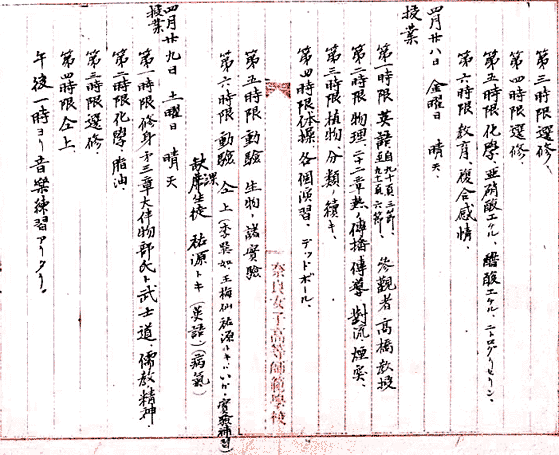 第三時限 選修、
第四時限 選修、
第五時限 化學、亜硝酸エチル、醋酸エチル、ニトログリセリン、
第六時限 教育、複合感情、
四月廿八日 金曜日 晴天、
授業
第一時限 英語 自九十頁三節、至九十一頁六節、 参観者 高橋教授
第二時限 物理、第二章熱ノ傳播 傳導 對流 煙突、
第三時限 植物、分類ノ續キ、
第四時限 体操、各個演習、デッドボール、
奈良女子高等師範學校
第五時限 動驗 生物ノ諸實驗
第六時限 動驗 仝上
缺席生徒 祐源トキ(英語)(病氣)
四月廿九日 土曜日 晴天
授業
第一時限 修身 第三章 大伴物部氏ト武士道 儒教精神
第二時限 化學、脂油
第三時限 選修、
第四時限 仝上、
午後一時ヨリ音樂練習アリタリ。